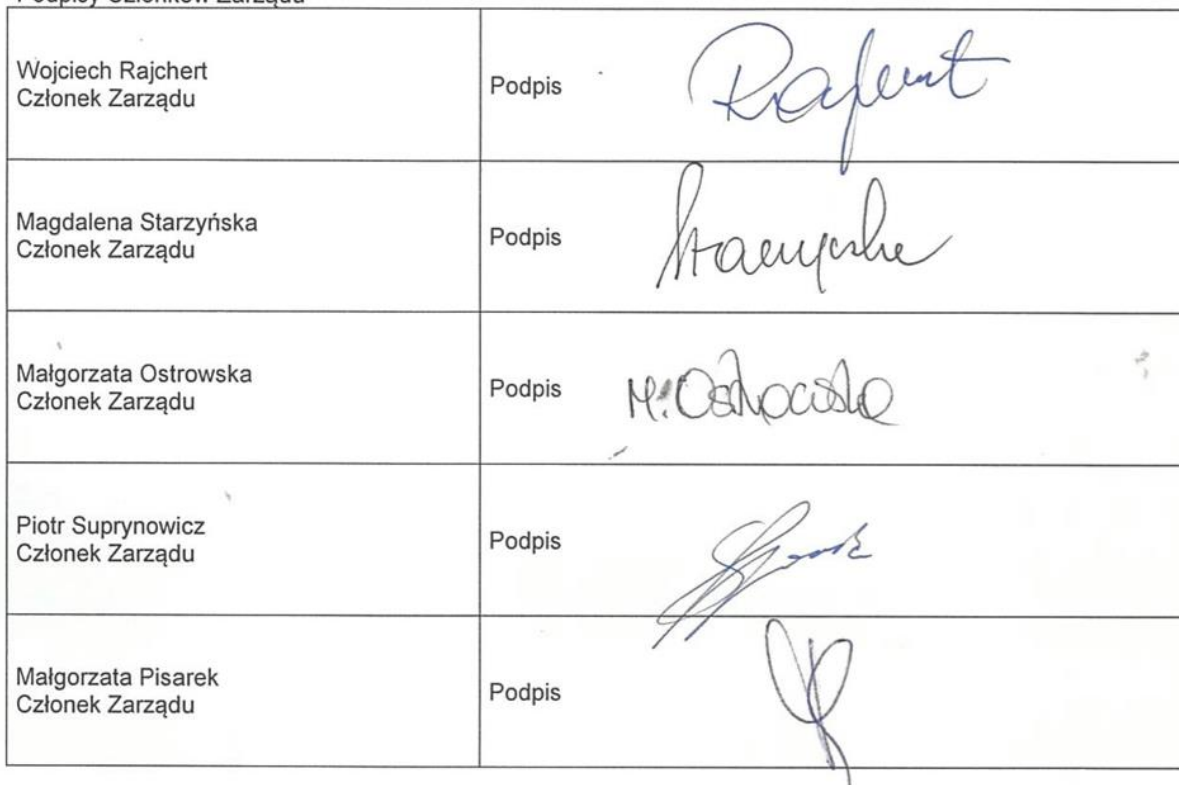 Podpisy Członków Zarządu
Wojciech Rajchert
Członek Zarządu
Podpis
Magdalena Starzyńska
Członek Zarządu
Podpis
Małgorzata Ostrowska
Członek Zarządu
Podpis M. Ostrowska
Piotr Suprynowicz
Członek Zarządu
Podpis
Małgorzata Pisarek
Członek Zarządu
Podpis